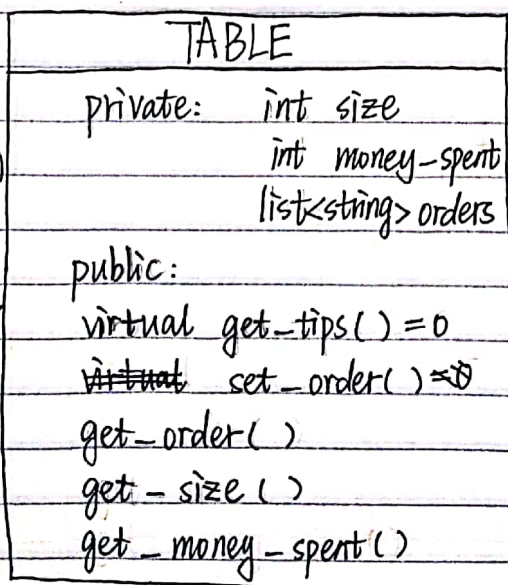 TABLE
private: int size
int money-spent
list<string> orders
public:
virtual get-tips() = 0
virtual set-order() = 0
get-order()
get-size()
get-money-spent()